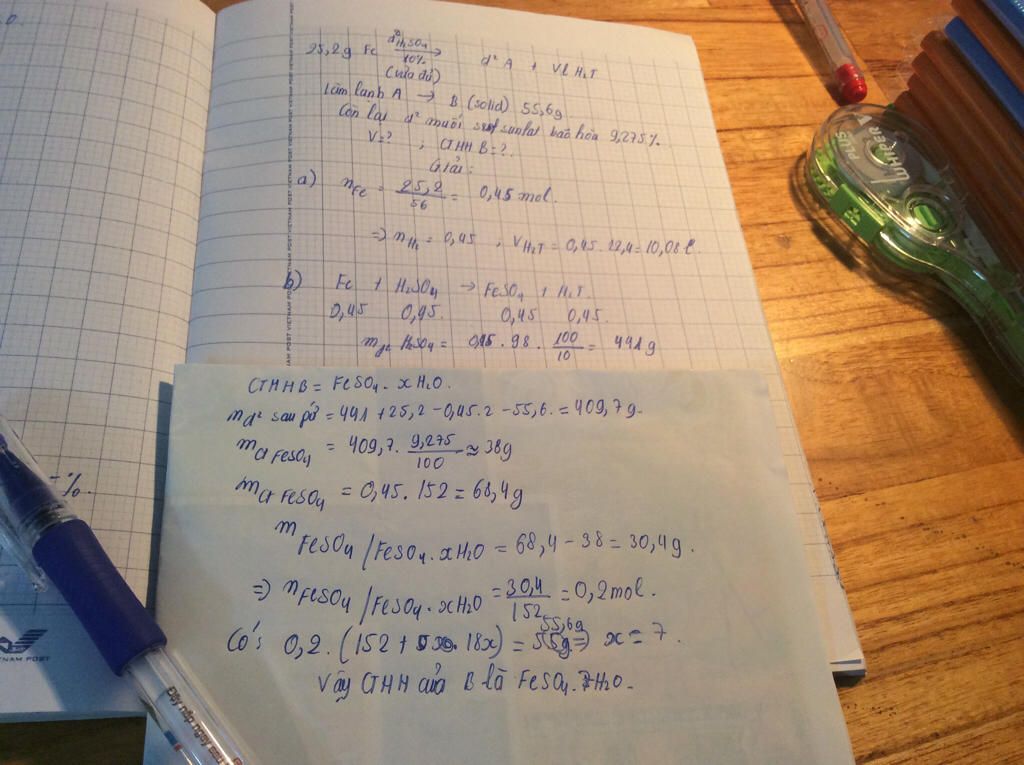 25,2g Fe d² H₂SO₄ 10% (vừa đủ) → d² A + Vl H₂↑
Làm lạnh A → B (solid) 55,6g
Còn lại d² muối sunfat bão hòa 9,275%
V=? ; CTHH B=?
Giải:
a) nFe = 25,2/56 = 0,45 mol.
=> nH₂ = 0,45 ; VH₂↑ = 0,45.22,4 = 10,08 l.
b) Fe + H₂SO₄ → FeSO₄ + H₂↑.
0,45 0,45. 0,45 0,45.
md² H₂SO₄ = 0,45 . 98 . 100/10 = 441g
CTHH B = FeSO₄ . xH₂O.
md² sau pứ = 441 + 25,2 - 0,45.2 - 55,6. = 409,7g.
mct FeSO₄ = 409,7 . 9,275/100 ≈ 38g
mct FeSO₄ = 0,45 . 152 = 68,4g
mFeSO₄/FeSO₄.xH₂O = 68,4 - 38 = 30,4g.
=> nFeSO₄/FeSO₄.xH₂O = 30,4/152 = 0,2mol.
Có: 0,2.(152 + 18x) = 55,6g => x = 7.
Vậy CTHH của B là FeSO₄.7H₂O.
-%.
VIETNAM POST VIETNAM POST VIETNAM POST
NAM POST
PLUS
WHIPER V